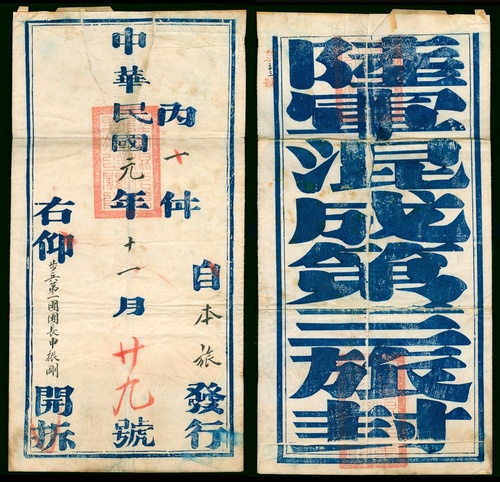 自本旅發行
内十件
中華民國元年十一月廿九號
右仰步兵第一團團長申振剛開拆
陸軍混成第三旅封